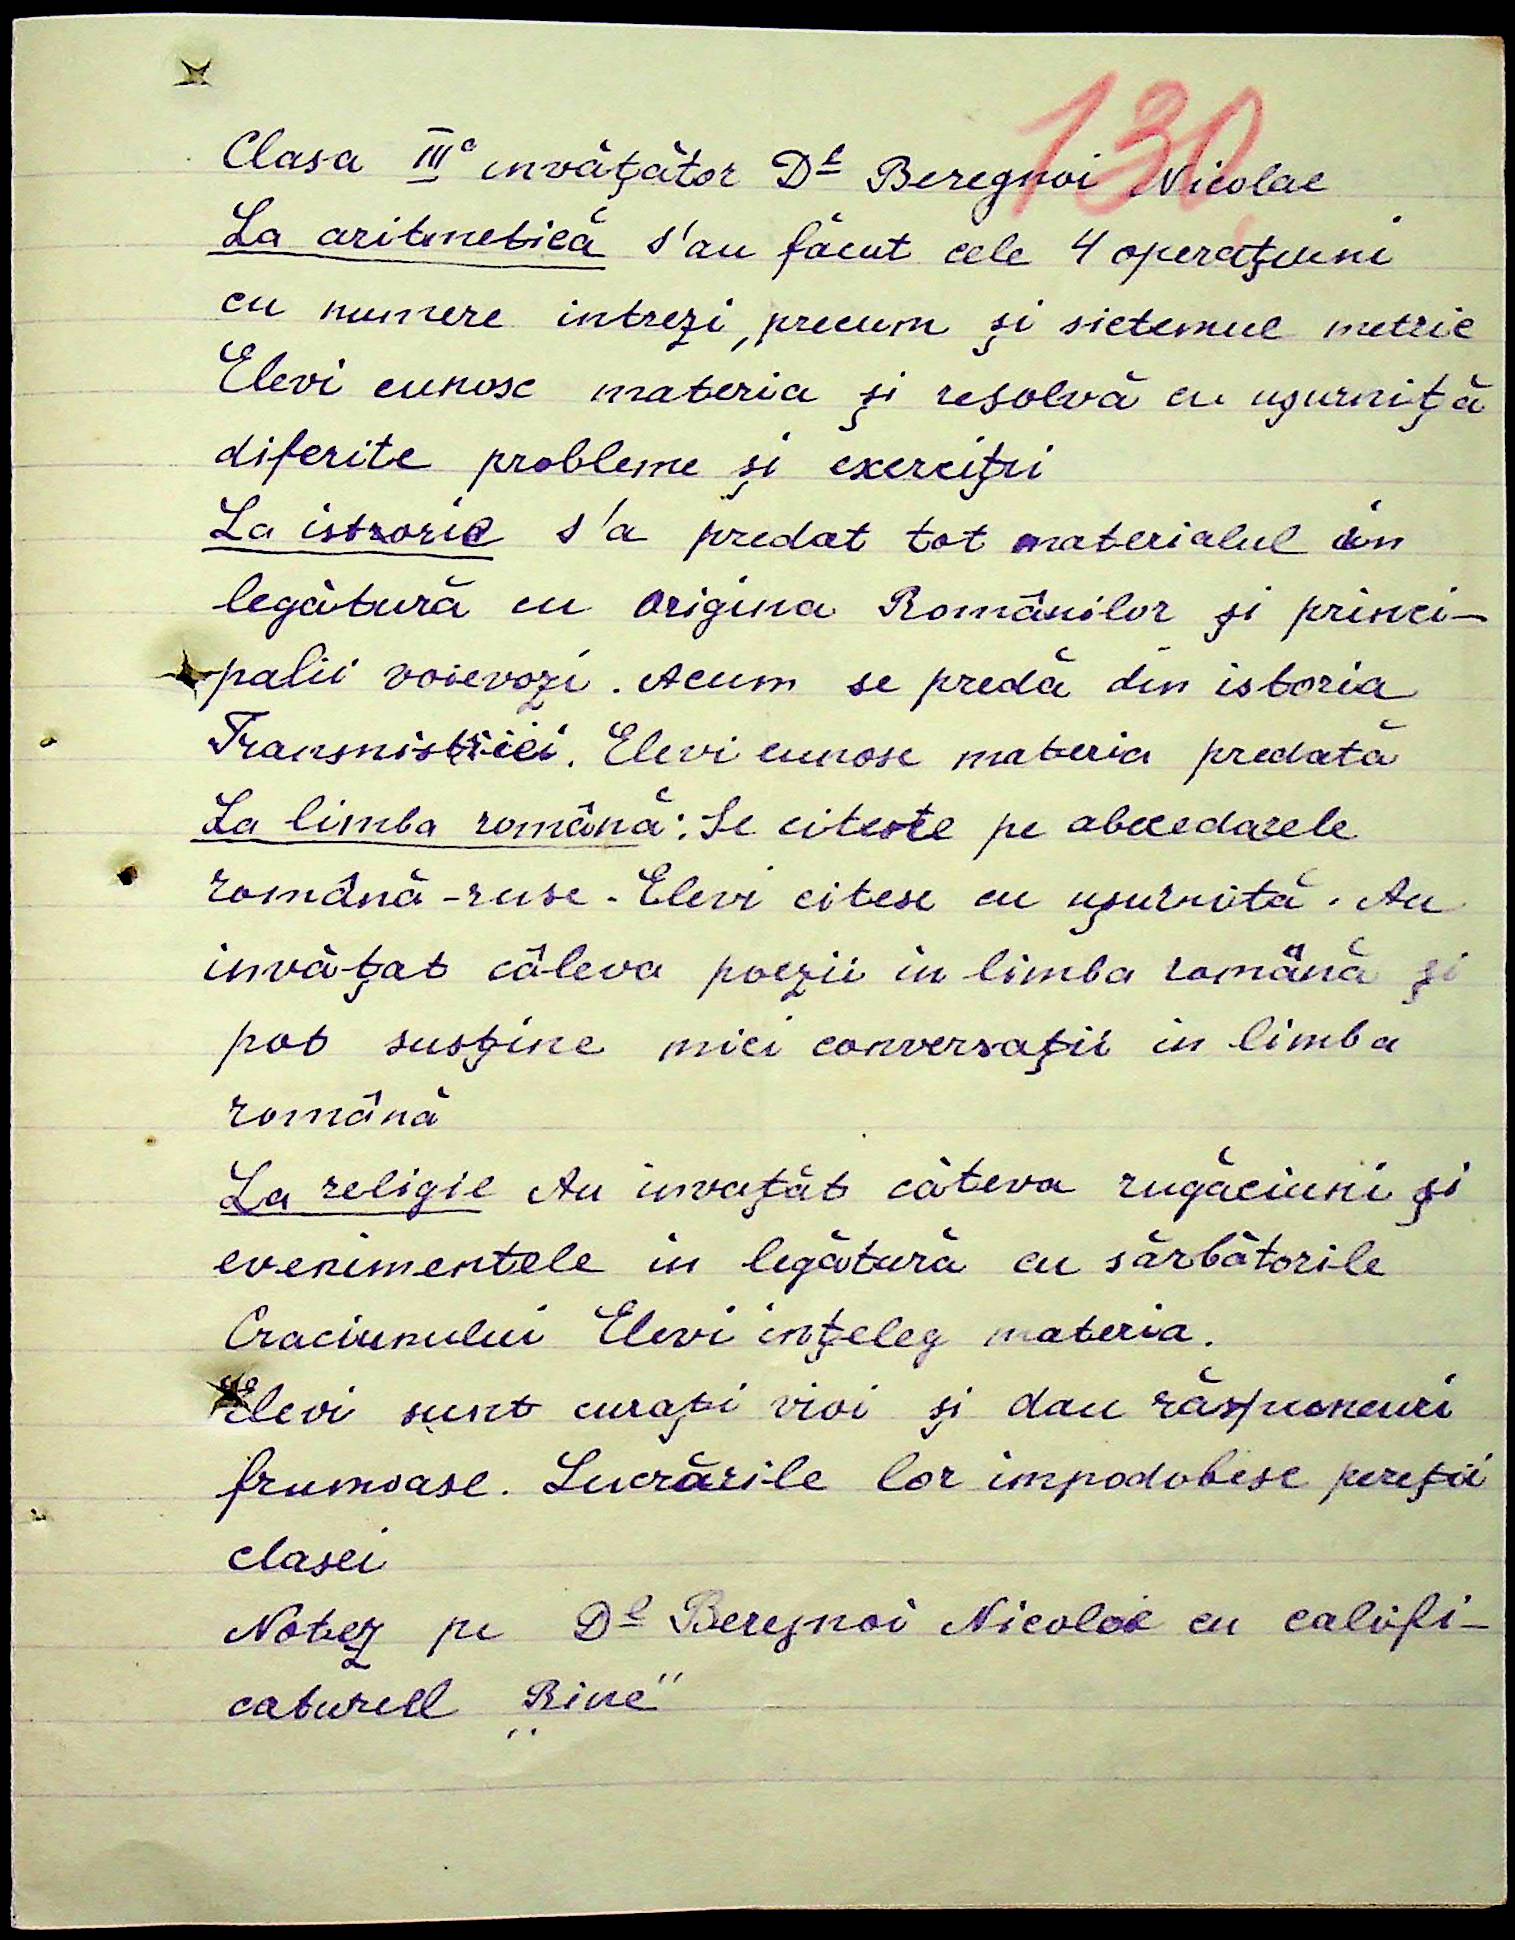 130
Clasa III^a invăţător D^l Beregnoi Nicolae
La aritmetică s'au făcut cele 4 operaţiuni
cu numere intrezi, precum şi sistemul metric
Elevi cunosc materia şi resolvă cu uşurniţă
diferite probleme şi exerciţii
La istorie s'a predat tot materialul în
legătură cu origina Românilor şi princi-
palii voievozi. Acum se predă din istoria
Transnistriei. Elevi cunosc materia predată
La limba română: Se citeste pe abecedarele
română-ruse. Elevi citesc cu uşurnită. Au
invăţat câteva poezii in limba română şi
pot susţine mici conversaţii in limba
română
La religie Au invaţăt câteva rugăciuni şi
evenimentele in legătură cu sărbătorile
Craciunului Elevi inţeleg materia.
Elevi sunt curaţi vioi şi dau răspunsuri
frumoase. Lucrările lor impodobesc pereţii
clasei
Notez pe D^l Beregnoi Nicolae cu califi-
caturul „Bine"